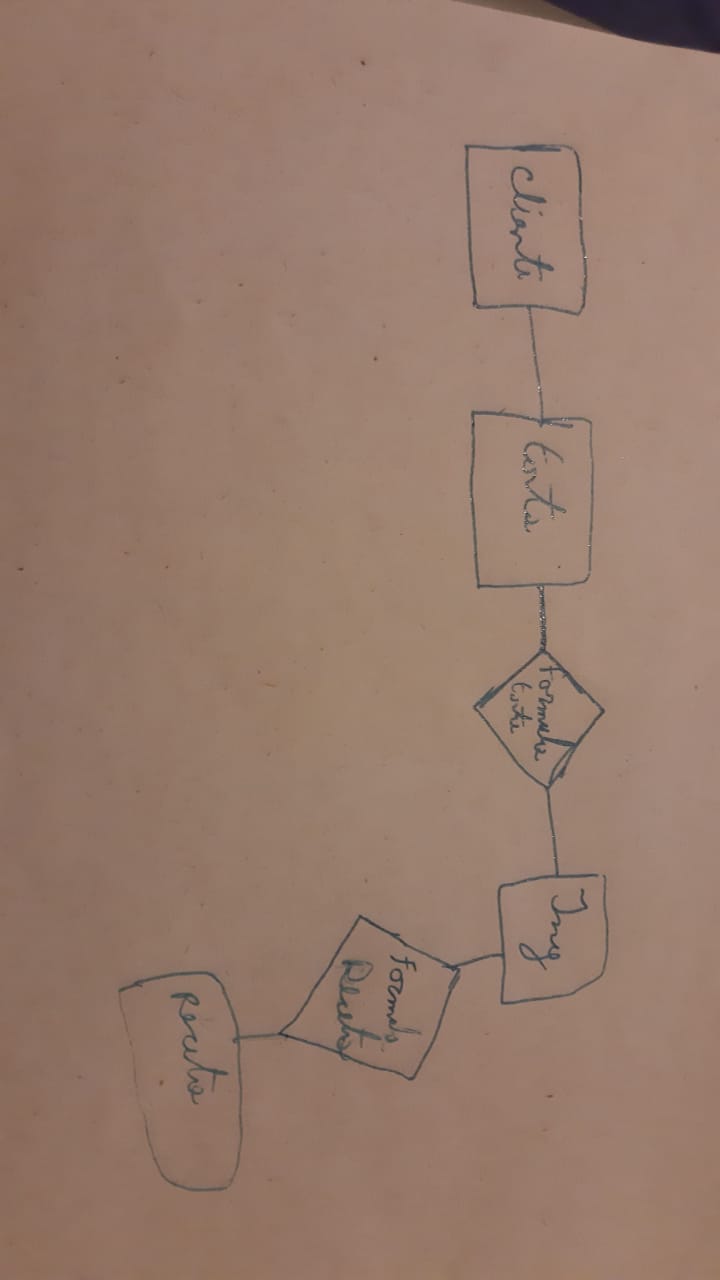 cliente
torta
Formula
torta
Ing
Formula
Receta
Receta